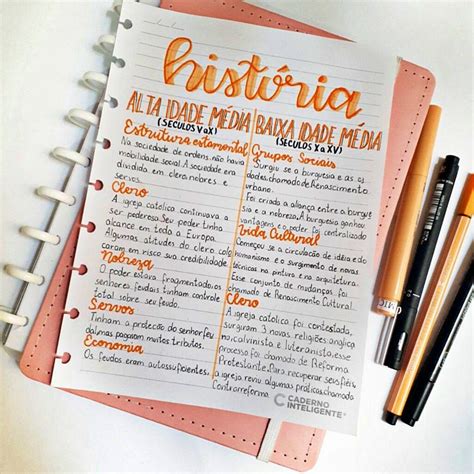 história
ALTA IDADE MÉDIA
(SÉCULOS V a X)
Estrutura estamental
Na sociedade de ordens não havia
mobilidade social. A sociedade era
dividida em clero, nobres e
servos.
Clero
A igreja católica continuava a
ser poderosa. Seu poder tinha
alcance em toda a Europa.
Algumas atitudes do clero colo
caram em risco sua credibilidade
Nobreza
O poder estava fragmentado, os
senhores feudais tinham controle
total sobre seu feudo.
Servos
Tinham a protecção do senhor feu
dal, mas pagavam muitos tributos.
Economia
Os feudos eram autossuficientes.
BAIXA IDADE MÉDIA
(SÉCULOS X a XV)
Grupos Sociais
Surgiu se a burguesia e as ci
dades, chamado de Renascimento
urbano.
Foi criado a aliança entre a burgue
sia e a nobreza. A burguesia ganhou
vantagem e o poder foi centralizado
Vida Cultural
Começou se a circulação de idéia do
humanismo e o surgimento de novas
técnicas na pintura e na arquitetura.
Esse conjunto de mudanças foi
chamado de Renascimento Cultural.
Clero
A igreja católica foi contestada,
surgiram 3 novas religiões: anglica
no, calvinista e luteranista, esse
processo foi chamado de Reforma
Protestante. Para recuperar seus fiéis,
a igreja reviu algumas práticas, chamado
Contrarreforma.
CADERNO
INTELIGENTE